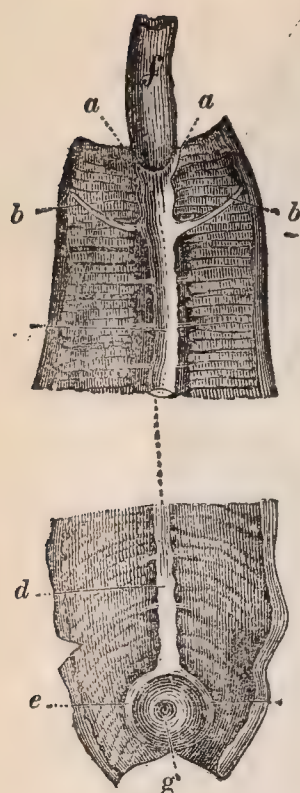 f
a a
b b
d
e
g